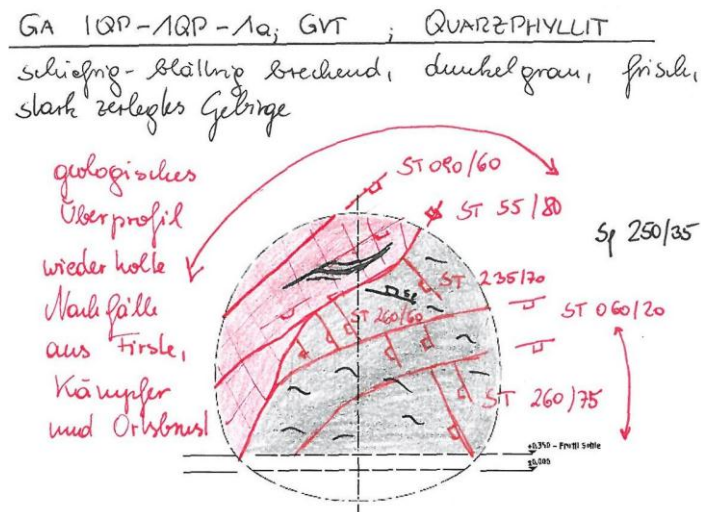 GA IQP-1QP-1a; GVT ; QUARZPHYLLIT
schiefrig-blättrig brechend, dunkelgrau, frisch,
stark zerlegtes Gebirge
geologisches
Überprofil
wiederholte
Nachfälle
aus Firste,
Kämpfer
und Ortsbrust
ST 090/60
ST 55/80
Sf 250/35
ST 235/70
sf
ST 260/60
ST 060/20
ST 260/75
+0.350 - Frästl Sohle
±0.000